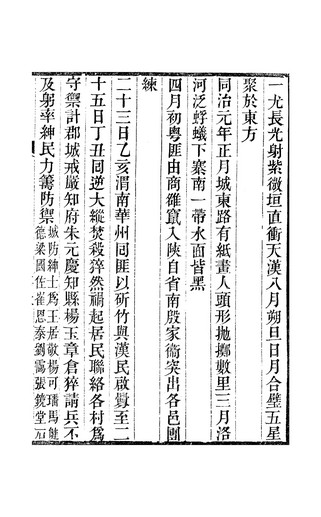 一尤長光射紫微垣直衝天漢八月朔旦日月合璧五星
聚於東方
同治元年正月城東路有紙畫人頭形拋擲數里三月洛
河泛蜉蟻下寨南一帶水面皆黑
四月初粵匪由商雒竄入陝自省南殷家衞突出各邑團
練
二十三日乙亥渭南華州回匪以斫竹與漢民啟釁至二
十五日丁丑回逆大縱焚殺猝然禍起居民聯絡各村為
守禦計郡城戒嚴知府朱元慶知縣楊玉章倉猝請兵不
及躬率紳民力籌防禦城防紳士王居敬楊可璠馬
德梁國佐崔恩泰劉張鏡堂